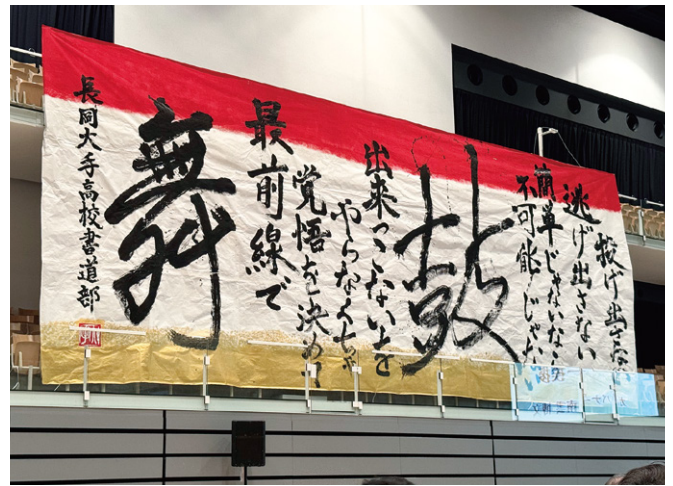 投げ出さない
逃げ出さない
簡単じゃないなら
不可能じゃない
鼓
出来っこないを
やらなくちゃ
覚悟を決めて
最前線で
舞
長岡大手高校書道部